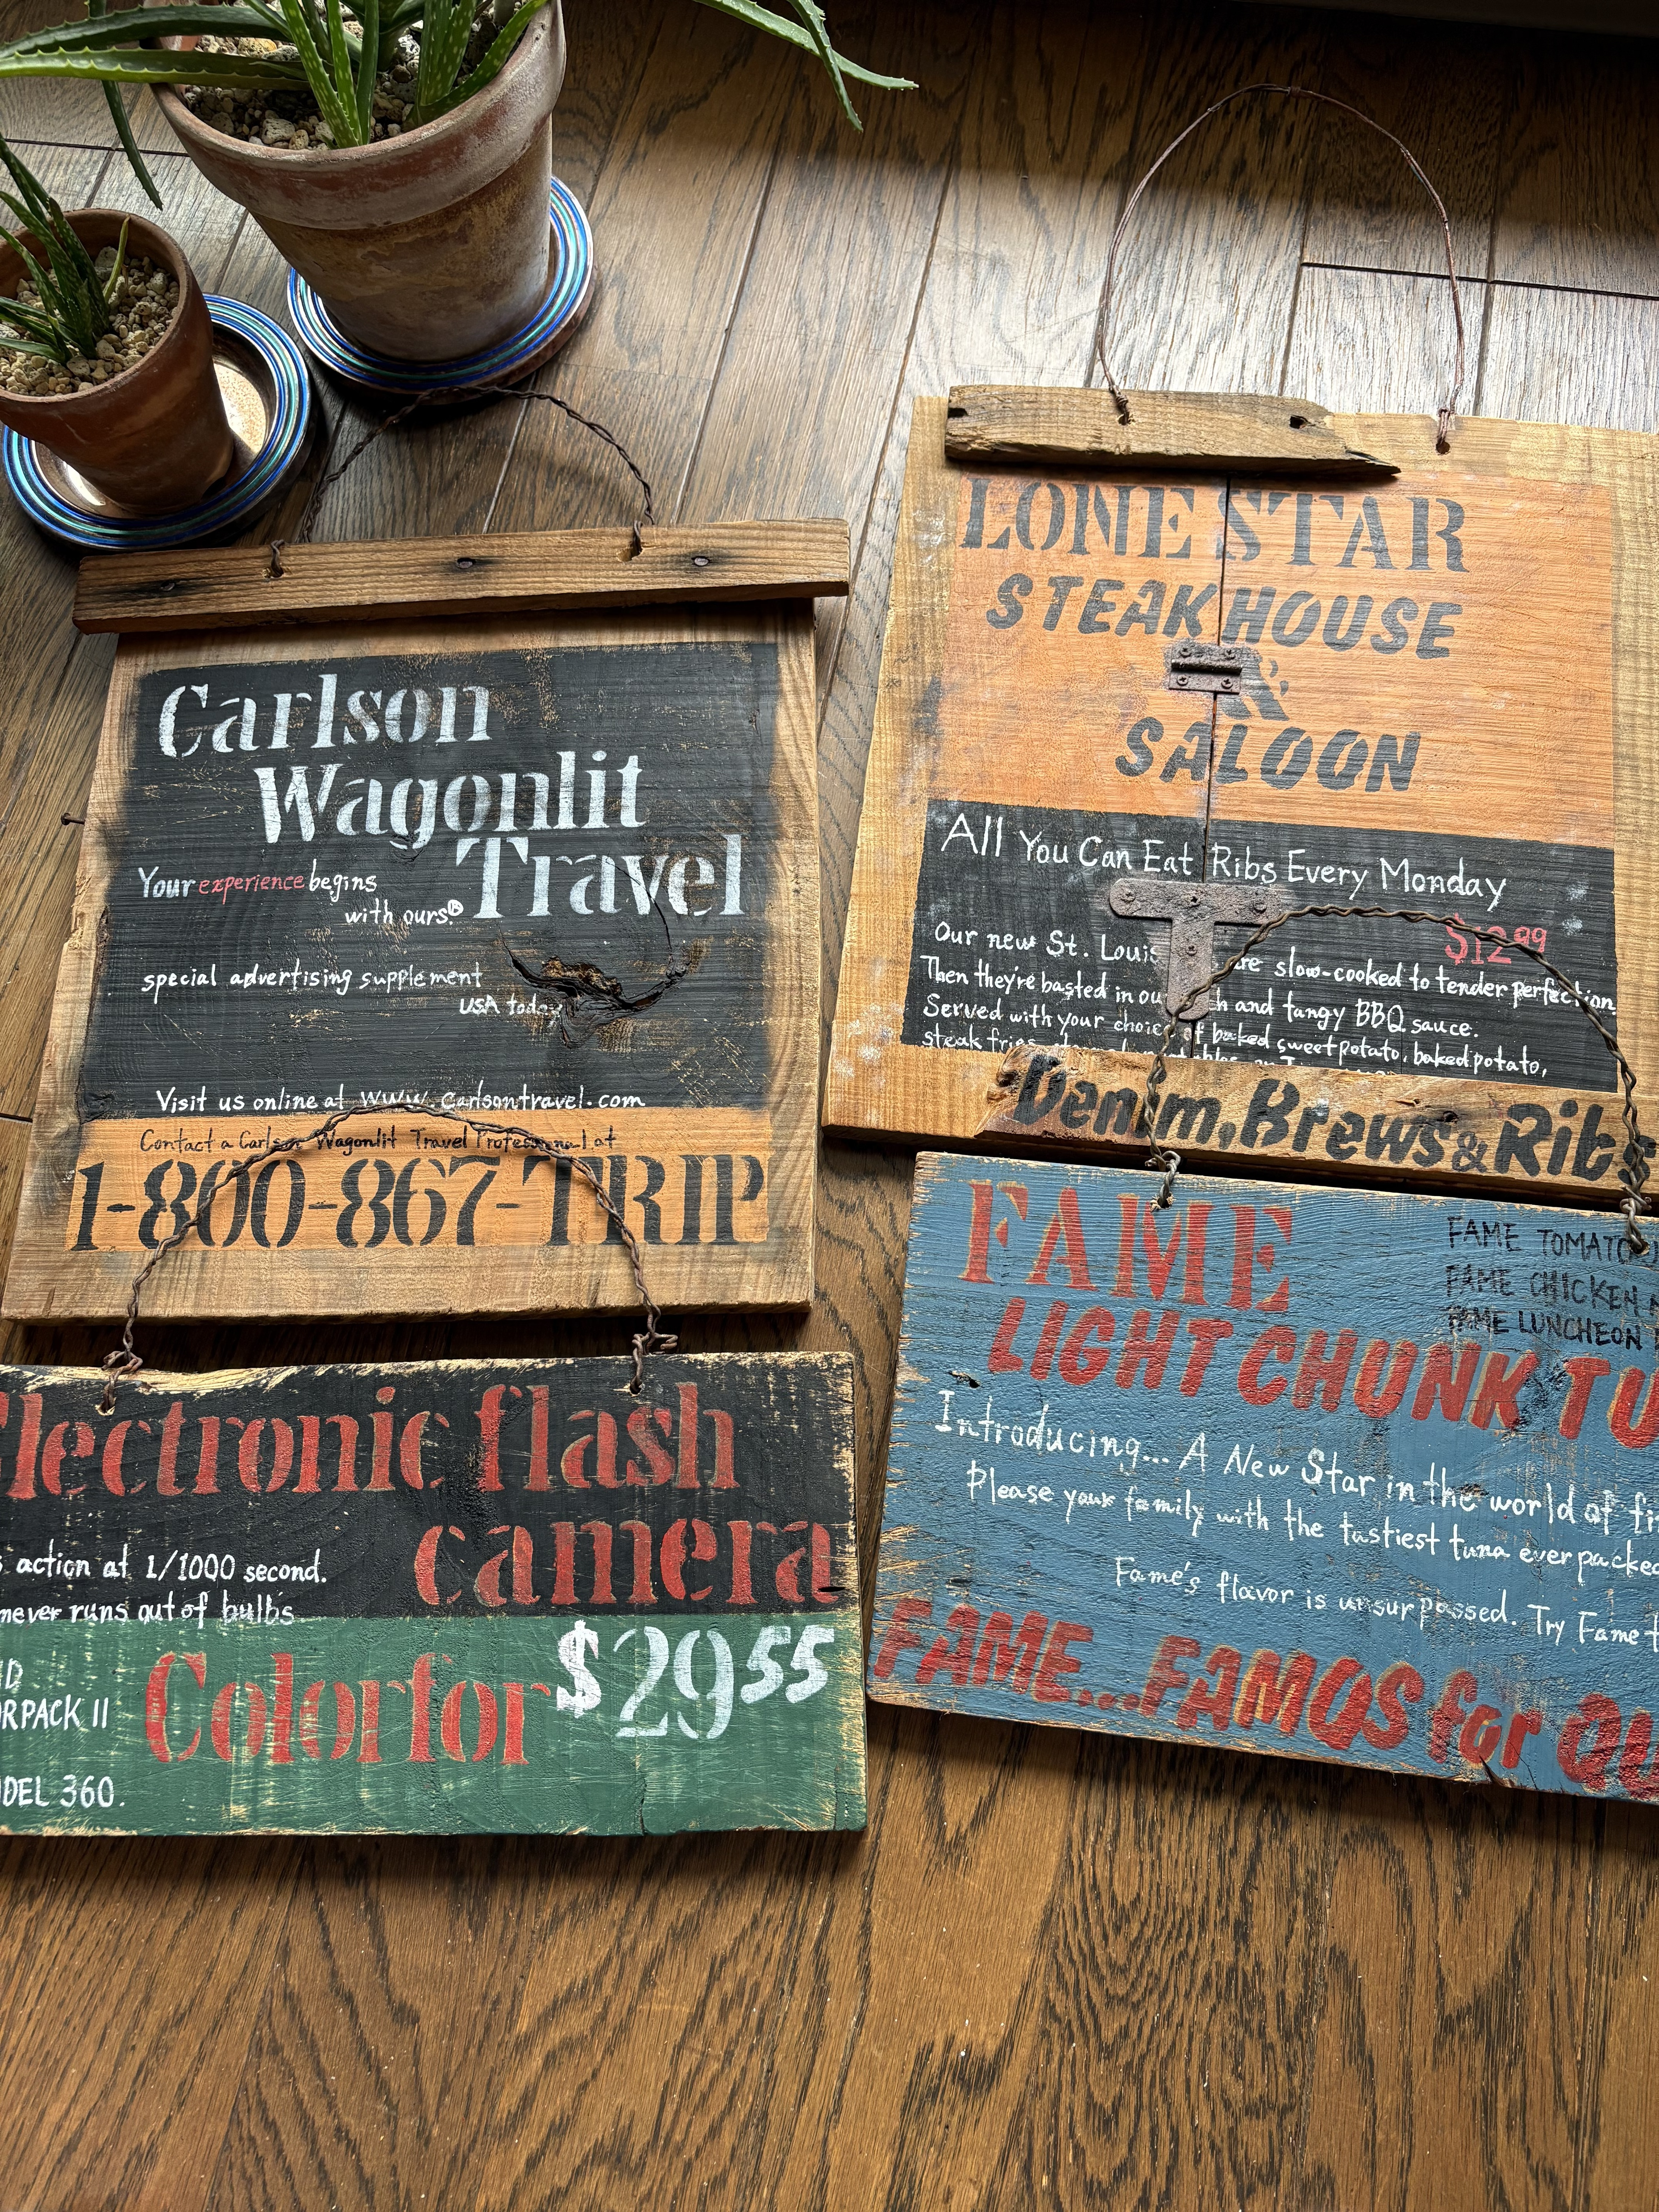 Carlson
Wagonlit
Travel
Your experience begins
with ours.®
special advertising supplement
USA today
Visit us online at www.carlsontravel.com
Contact a Carlson Wagonlit Travel Professional at
1-800-867-TRIP
LONE STAR
STEAKHOUSE
&
SALOON
All You Can Eat Ribs Every Monday
$12.99
Our new St. Louis are slow-cooked to tender perfection.
Then they're basted in and tangy BBQ sauce.
Served with your choice of baked sweet potato, baked potato,
steak fries
Denim, Brews & Ribs
Electronic flash
camera
action at 1/1000 second.
never runs out of bulbs
RPACK II
Color for $29 55
DEL 360.
FAME
FAME TOMATO
FAME CHICKEN
FAME LUNCHEON
LIGHT CHUNK TU
Introducing... A New Star in the world of
Please your family with the tastiest tuna ever packed
Fame's flavor is unsurpassed. Try Fame
FAME...FAMOS for QU